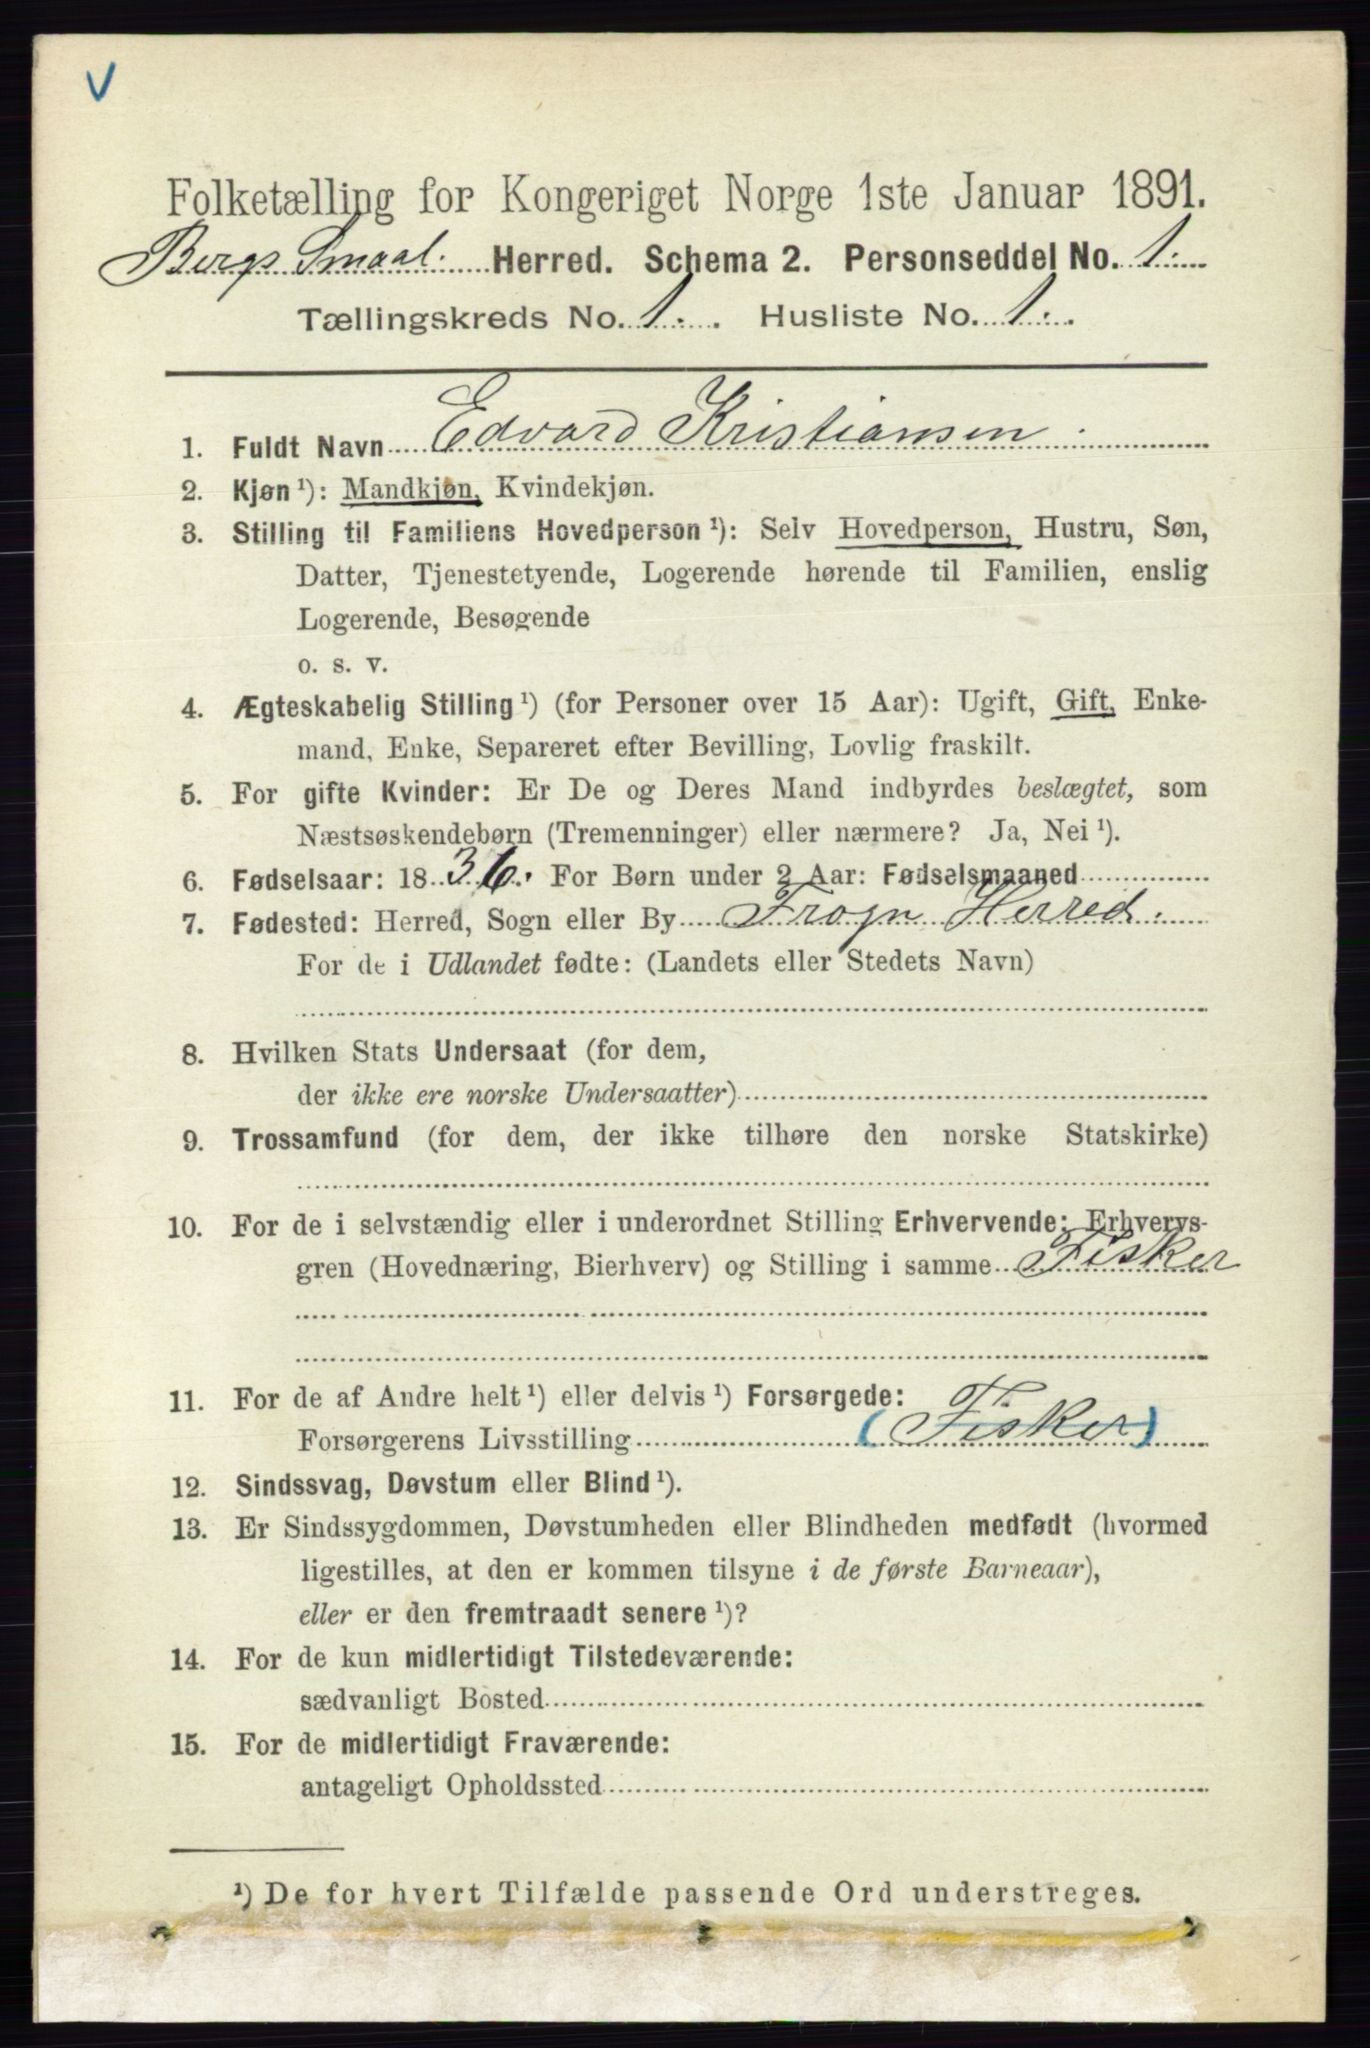 V
Folketælling for Kongeriget Norge 1ste Januar 1891.
Bergs Smaal. Herred. Schema 2. Personseddel No. 1.
Tællingskreds No. 1. Husliste No. 1.
1. Fuldt Navn Edvard Kristiansen.
2. Kjøn ¹): Mandkjøn, Kvindekjøn.
3. Stilling til Familiens Hovedperson ¹): Selv Hovedperson, Hustru, Søn,
Datter, Tjenestetyende, Logerende hørende til Familien, enslig
Logerende, Besøgende
o. s. v.
4. Ægteskabelig Stilling ¹) (for Personer over 15 Aar): Ugift, Gift, Enke-
mand, Enke, Separeret efter Bevilling, Lovlig fraskilt.
5. For gifte Kvinder: Er De og Deres Mand indbyrdes beslægtet, som
Næstsøskendebørn (Tremenninger) eller nærmere? Ja, Nei ¹).
6. Fødselsaar: 1836. For Børn under 2 Aar: Fødselsmaaned
7. Fødested: Herred, Sogn eller By Frogn Herred.
For de i Udlandet fødte: (Landets eller Stedets Navn)
8. Hvilken Stats Undersaat (for dem,
der ikke ere norske Undersaatter)
9. Trossamfund (for dem, der ikke tilhøre den norske Statskirke)
10. For de i selvstændig eller i underordnet Stilling Erhvervende: Erhvervs-
gren (Hovednæring, Bierhverv) og Stilling i samme Fisker
11. For de af Andre helt ¹) eller delvis ¹) Forsørgede:
Forsørgerens Livsstilling (Fisker)
12. Sindssvag, Døvstum eller Blind ¹).
13. Er Sindssygdommen, Døvstumheden eller Blindheden medfødt (hvormed
ligestilles, at den er kommen tilsyne i de første Barneaar),
eller er den fremtraadt senere ¹)?
14. For de kun midlertidigt Tilstedeværende:
sædvanligt Bosted
15. For de midlertidigt Fraværende:
antageligt Opholdssted
¹) De for hvert Tilfælde passende Ord understreges.